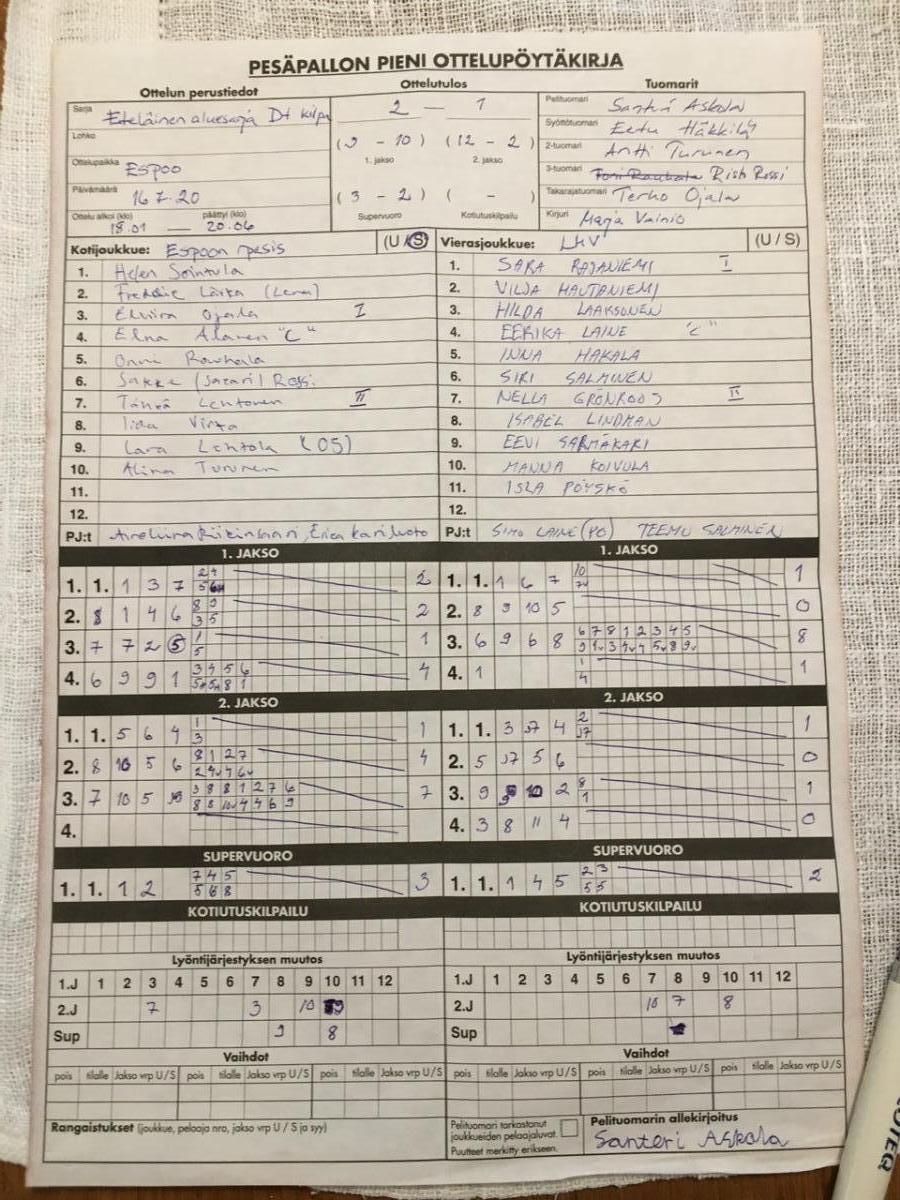 PESÄPALLON PIENI OTTELUPÖYTÄKIRJA
Ottelun perustiedot Ottelutulos Tuomarit
Sarja Eteläinen aluesarja D+ kilpa
2 — 1
Pelituomari
Lohko
(9 - 10) (12 - 2)
Syöttötuomari Eetu Häkkilä
Ottelupaikka ESPOO
1. jakso 2. jakso
2-tuomari Antti Turunen
Päivämäärä 16.7.20
(3 - 2) ( - )
3-tuomari Risto Rossi
Ottelu alkoi (klo) 18.01 — päättyi (klo) 20.04
Supervuoro Kotiutuskilpailu
Takarajatuomari Terho Ojala
Kirjuri Marja Vainio
Kotijoukkue: Espoon pesis (U / S) Vierasjoukkue: LMV (U / S)
1. Helen Sointula 1. SARA RAJANIEMI I
2. Freddie 2. VILJA HAUTANIEMI
3. Elviira Ojala I 3. HILDA LAAKSONEN
4. Elna Alanen "C" 4. EERIKA LAINE "C"
5. Onni Rauhala 5. INNA HAKALA
6. Sakke 6. SIRI SALMINEN
7. Lehtonen II 7. NELLA GRÖNROOS II
8. Iida Virta 8. ISABEL LINDMAN
9. Lara Lehtola (05) 9. EEVI SARMÄKARI
10. Alina Turunen 10. MANNA KOIVULA
11. 11. ISLA PÖYSKÖ
12. 12.
PJ:t PJ:t SIMO LAINE (PO) TEEMU SALMINEN
1. JAKSO 1. JAKSO
1. 1. 1 3 7 2 1. 1. 1 6 7 1
2. 8 1 4 6 2 2. 8 9 10 5 0
3. 7 7 2 5 1 3. 6 9 6 8 6 7 8 1 2 3 4 5 8
4. 6 9 9 1 3 4 5 6 4 4. 1 1 4 1
2. JAKSO 2. JAKSO
1. 1. 5 6 4 1 3 1 1. 1. 3 4 2 1
2. 8 10 5 6 8 1 2 7 4 2. 5 5 6 0
3. 7 10 5 7 3. 9 10 2 8 1 1
4. 4. 3 8 11 4 0
SUPERVUORO SUPERVUORO
1. 1. 1 2 7 4 5 5 6 8 3 1. 1. 1 4 5 2 3 5 5 2
KOTIUTUSKILPAILU KOTIUTUSKILPAILU
Lyöntijärjestyksen muutos Lyöntijärjestyksen muutos
1.J 1 2 3 4 5 6 7 8 9 10 11 12 1.J 1 2 3 4 5 6 7 8 9 10 11 12
2.J 7 3 10 2.J 10 7 8
Sup 9 8 Sup
Vaihdot Vaihdot
pois tilalle Jakso vrp U/S pois tilalle Jakso vrp U/S pois tilalle Jakso vrp U/S pois tilalle Jakso vrp U/S
Rangaistukset (joukkue, pelaaja nro, jakso vrp U / S ja syy)
Pelituomari tarkastanut
joukkueiden pelaajaluvat.
Puutteet merkitty erikseen.
Pelituomarin allekirjoitus
Santeri Askola